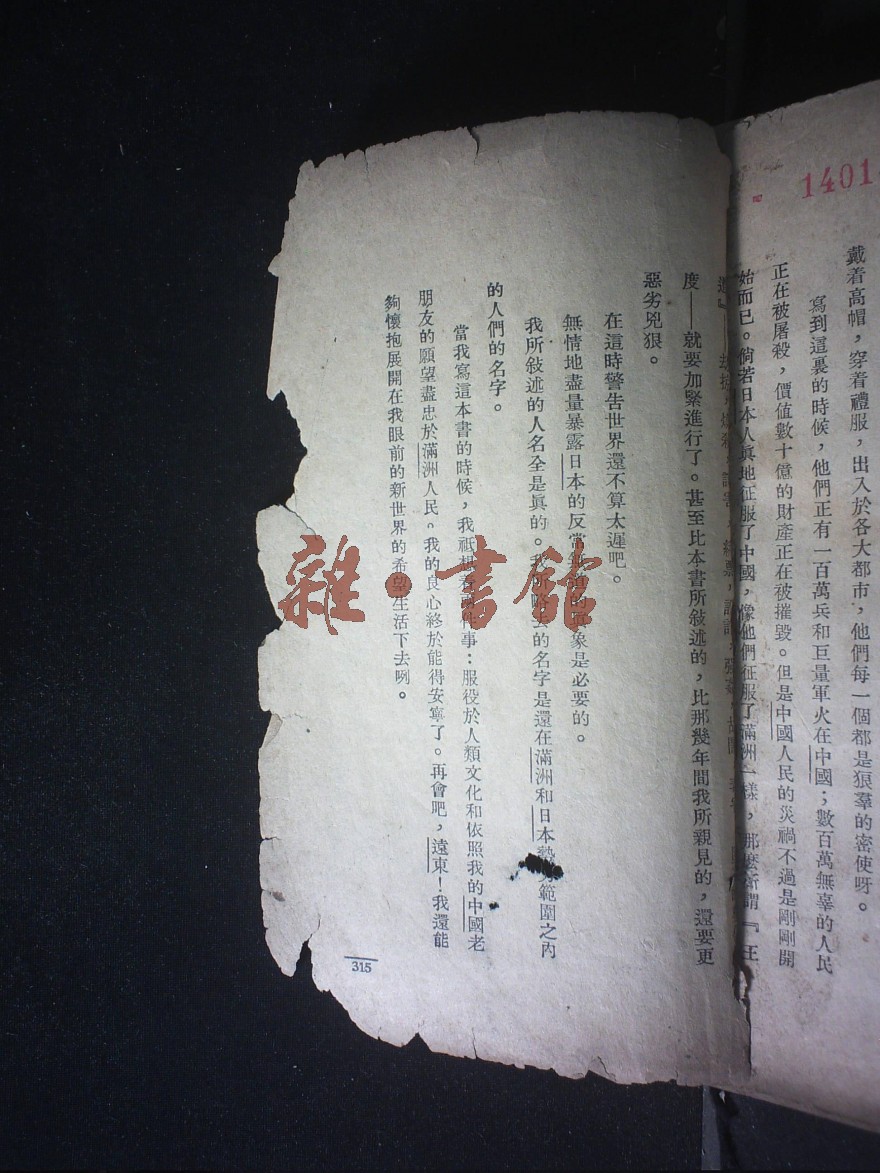 1401
戴着高帽，穿着禮服，出入於各大都市，他們每一個都是狠羣的密使呀。
寫到這裏的時候，他們正有一百萬兵和巨量軍火在中國；數百萬無辜的人民
正在被屠殺，價值數十億的財產正在被摧毀。但是中國人民的災禍不過是剛剛開
始而已。倘若日本人眞地征服了中國，像他們征服了滿洲一樣，那麼所謂『王
道』
度——就要加緊進行了。甚至比本書所敍述的，比那幾年間我所親見的，還要更
惡劣兇狠。
在這時警告世界還不算太遲吧。
無情地盡量暴露日本的反常無道的眞象是必要的。
我所敍述的人名全是眞的。我所略去的名字是還在滿洲和日本勢力範圍之內
的人們的名字。
當我寫這本書的時候，我祗想着兩件事：服役於人類文化和依照我的中國老
朋友的願望盡忠於滿洲人民。我的良心終於能得安寧了。再會吧，遠東！我還能
夠懷抱展開在我眼前的新世界的希望生活下去咧。
315
雜·書館